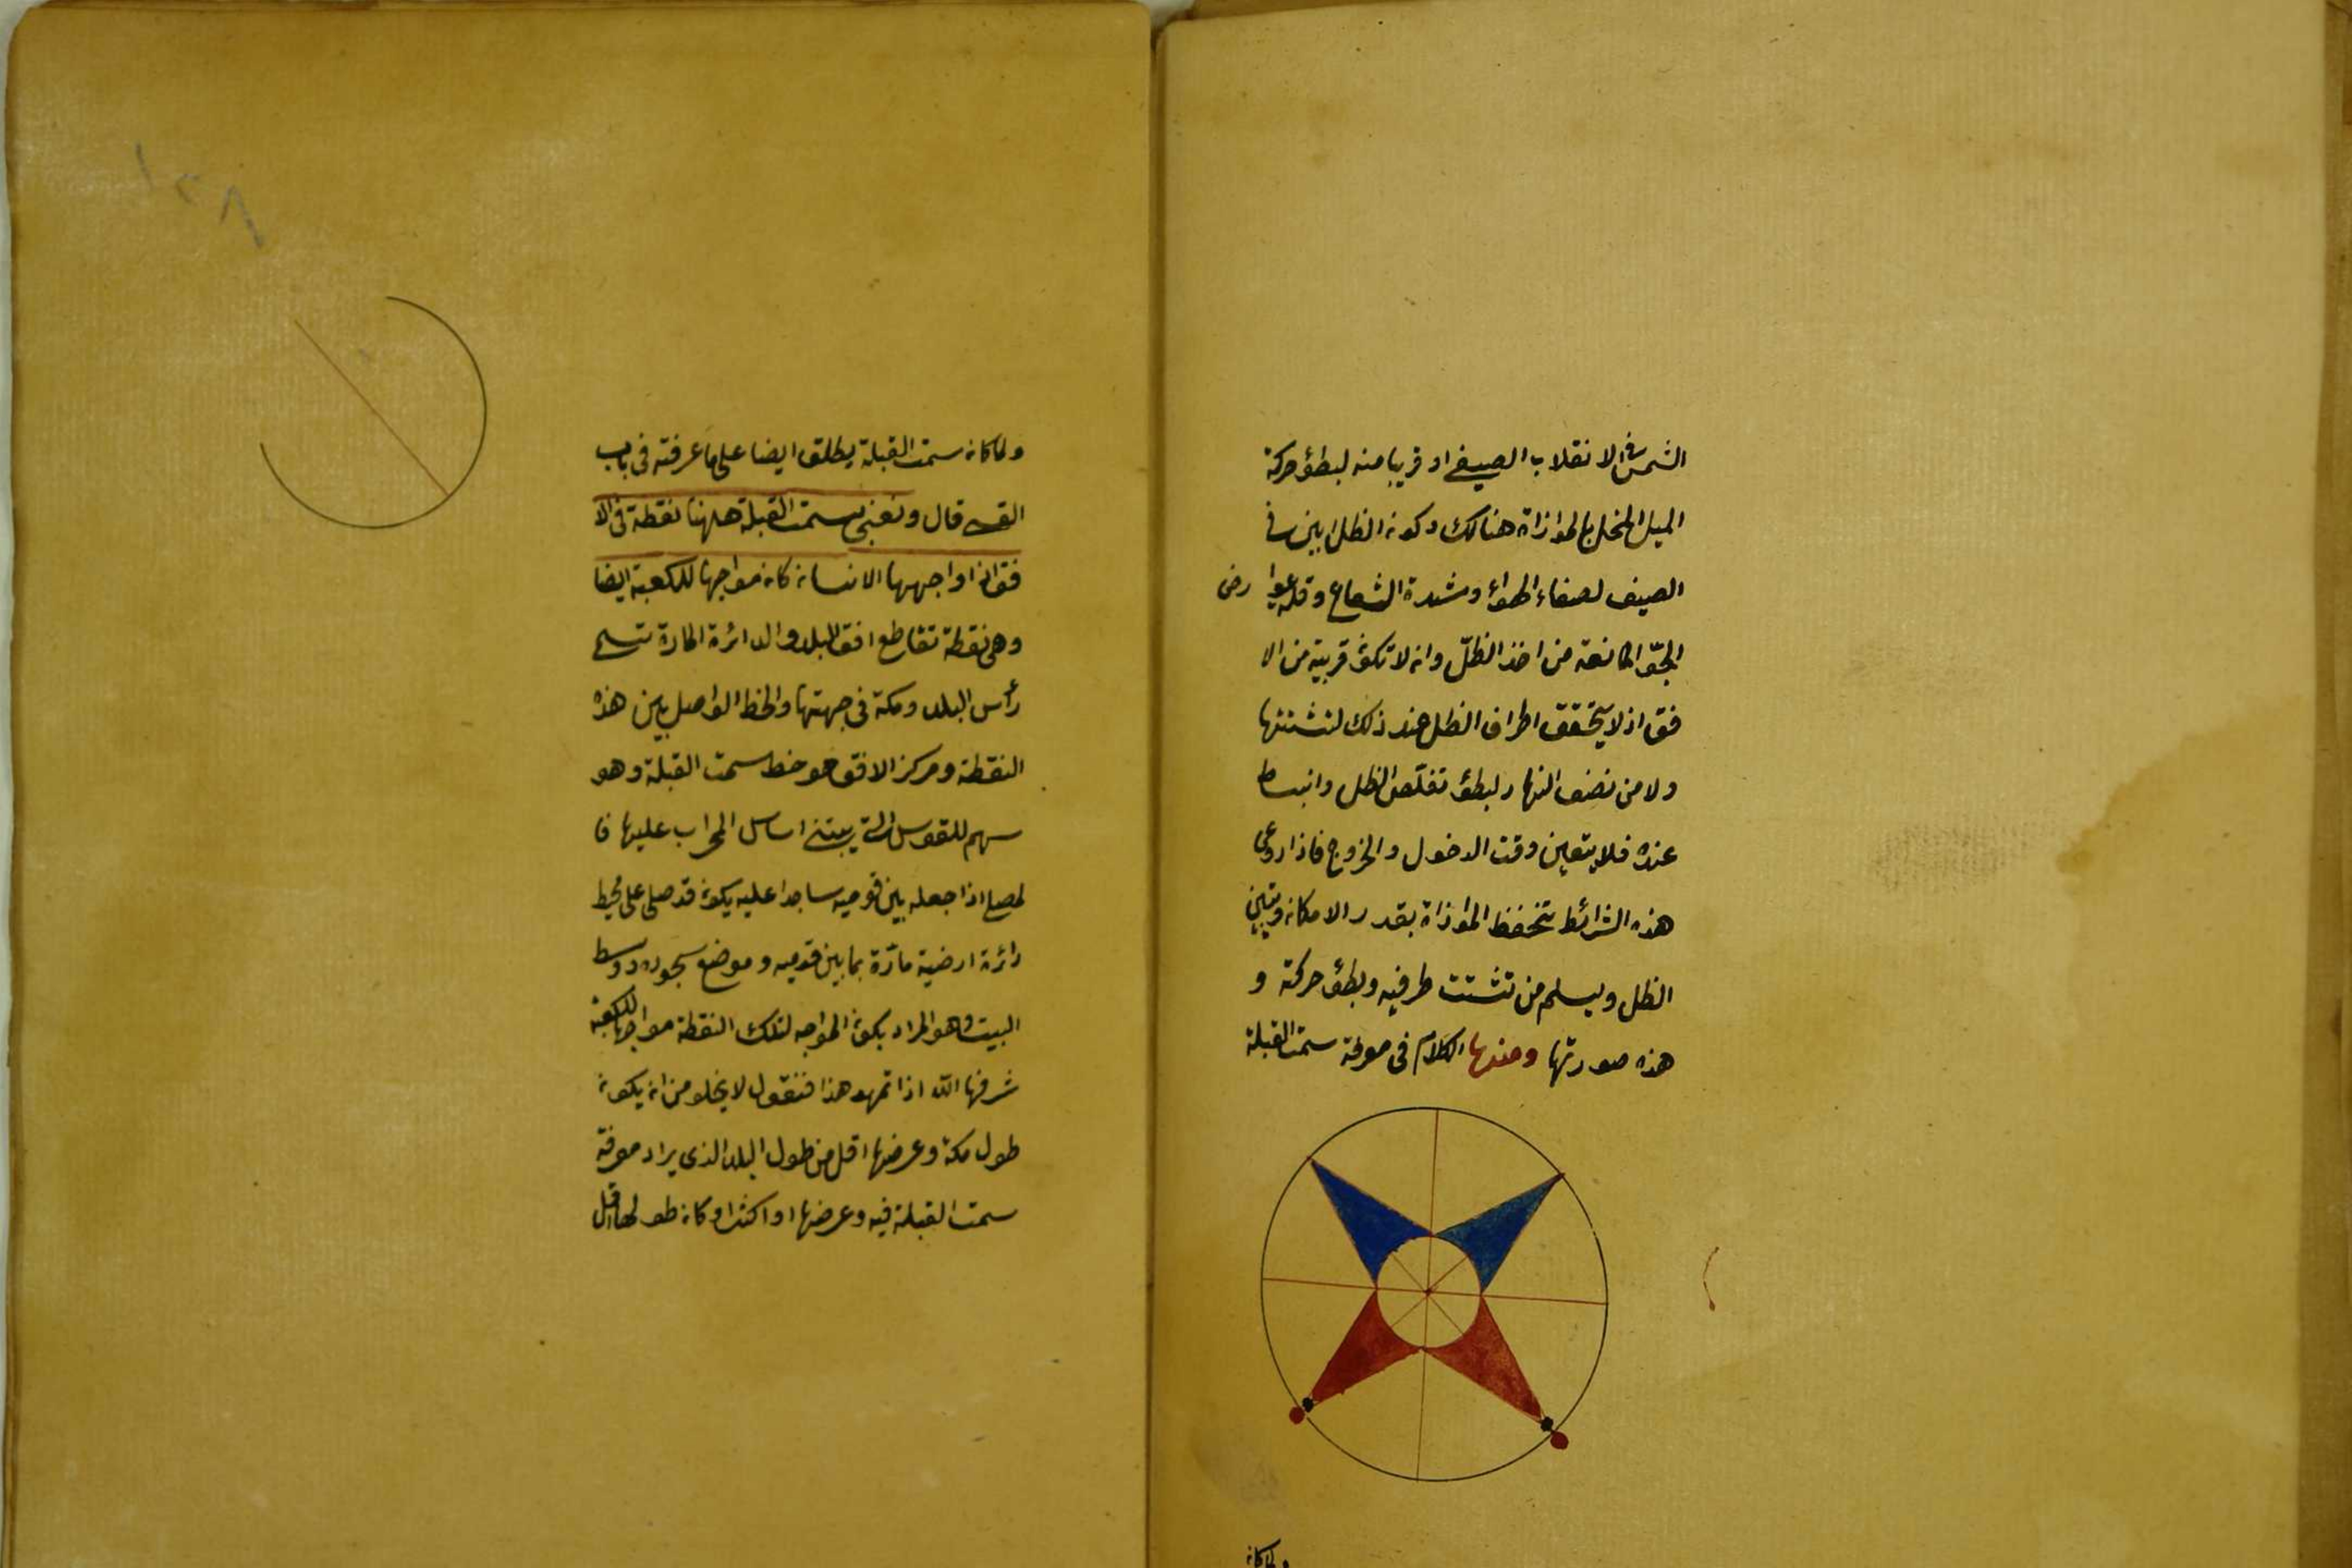 الشمس في الانقلاب الصيفي او قريبا منه لبطؤ حركة
الميل المخل بالموازاة هنالك وكون الظل ابين في
الصيف لصفاء الهواء وشدة الشعاع وقلة عوارض
الجو المانعة من اخذ الظل وان لا تكون قريبة من الا
فق اذ لا يتحقق اطراف الظل عند ذلك لتشتتها
ولا من نصف النهار لبطؤ تقلص الظل وانبساط
عنده فلا يتعين وقت الدخول والخروج فاذا روعى
هذه الشرائط تنحفظ الموازاة بقدر الامكان ويتبين
الظل ويسلم من تشتت طرفيه وبطؤ حركة و
هذه صورتها ومنها الكلام فى معرفة سمت القبلة
ولما كان
١٢٨
ولما كان سمت القبلة يطلق ايضا على ما عرفته فى باب
القسى قال ونعنى بسمت القبلة ههنا نقطة فى الا
فق اذا واجهها الانسان كان مواجها للكعبة ايضا
وهى نقطة تقاطع افق البلد والدائرة المارة بسمتى
رأس البلد ومكة فى جهتها والخط الواصل بين هذه
النقطة ومركز الافق هو خط سمت القبلة وهو
سهم للقوس التى يبتنى اساس المحراب عليها فا
لمصلى اذا جعله بين قدميه ساجدا عليه يكون قد صلى على محيط
دائرة ارضية مارّة بما بين قدميه وموضع سجوده ووسط
البيت وهو المراد بكون المواجه لتلك النقطة مواجها للكعبة
شرفها الله اذا تمهد هذا فنقول لا يخلو من ان يكون
طول مكة وعرضها اقل من طول البلد الذى يراد معرفة
سمت القبلة فيه وعرضها او اكثر او كان طولها اقل